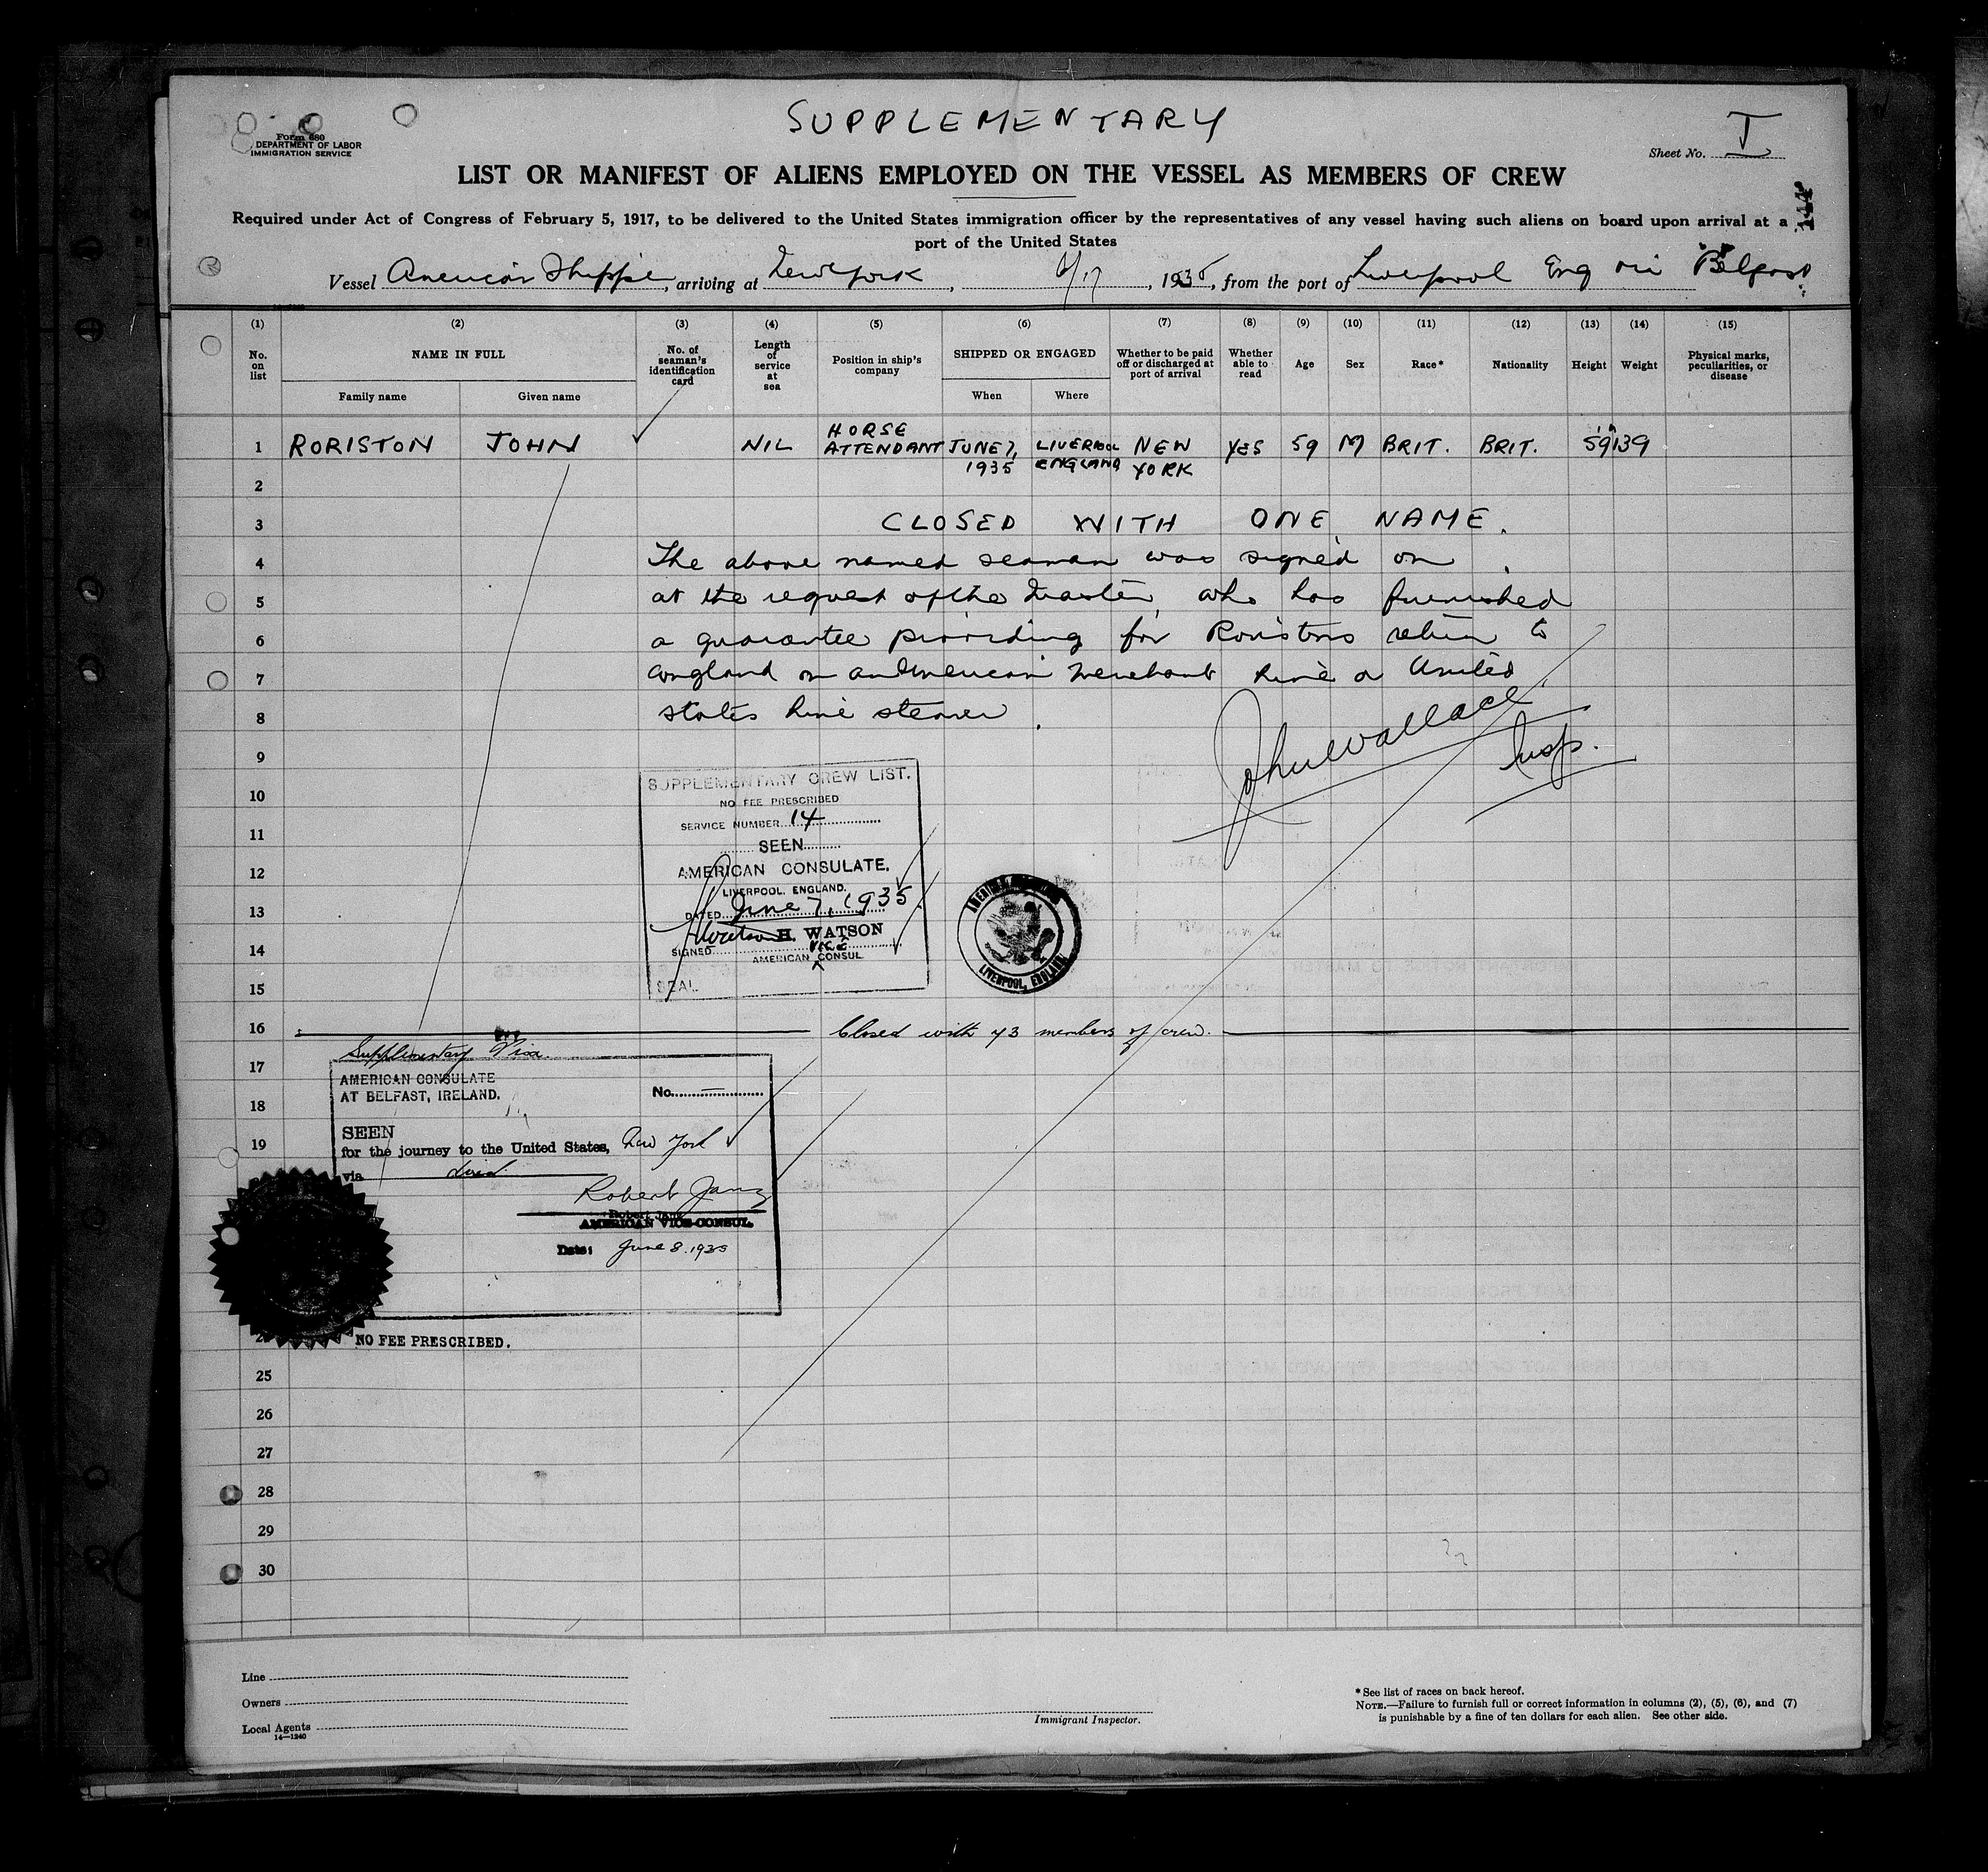 SUPPLEMENTARY
Form 680
DEPARTMENT OF LABOR
IMMIGRATION SERVICE
Sheet No. I
LIST OR MANIFEST OF ALIENS EMPLOYED ON THE VESSEL AS MEMBERS OF CREW
Required under Act of Congress of February 5, 1917, to be delivered to the United States immigration officer by the representatives of any vessel having such aliens on board upon arrival at a
port of the United States
Vessel American Shipper, arriving at New York, 6/17, 1935, from the port of Liverpool Eng via Belfast
(1) (2) (3) (4) (5) (6) (7) (8) (9) (10) (11) (12) (13) (14) (15)
No. on list NAME IN FULL No. of seaman's identification card Length of service at sea Position in ship's company SHIPPED OR ENGAGED Whether to be paid off or discharged at port of arrival Whether able to read Age Sex Race* Nationality Height Weight Physical marks, peculiarities, or disease
Family name Given name When Where
1 RORISTON JOHN NIL HORSE ATTENDANT JUNE 7, 1935 LIVERPOOL ENGLAND NEW YORK YES 59 M BRIT. BRIT. 5'9" 139
2
3 CLOSED WITH ONE NAME.
4 The above named seaman was signed on
5 at the request of the Master, who has furnished
6 a guarantee providing for Roristons return to
7 England on an American Merchant Line or United
8 States Line steamer.
John Wallace
Insp.
9
10
11
12
13
14
15
SUPPLEMENTARY CREW LIST.
NO FEE PRESCRIBED
SERVICE NUMBER 14
SEEN
AMERICAN CONSULATE.
LIVERPOOL, ENGLAND.
DATED June 7, 1935
H. WATSON
SIGNED
VICE
AMERICAN CONSUL
SEAL
LIVERPOOL, ENGLAND
16 Closed with 43 members of crew.
Supplementary Visa.
17
18
19
AMERICAN CONSULATE
AT BELFAST, IRELAND.
No. —
SEEN
for the journey to the United States, New York
via direct
Robert Janz
Robert Janz
AMERICAN VICE-CONSUL
Date: June 8, 1935
NO FEE PRESCRIBED.
25
26
27
28
29
30
Line
Owners
Local Agents
14—1240
Immigrant Inspector.
*See list of races on back hereof.
NOTE.—Failure to furnish full or correct information in columns (2), (5), (6), and (7)
is punishable by a fine of ten dollars for each alien. See other side.